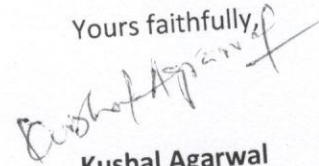 Yours faithfully,
Kushal Agarwal
Kushal Agarwal